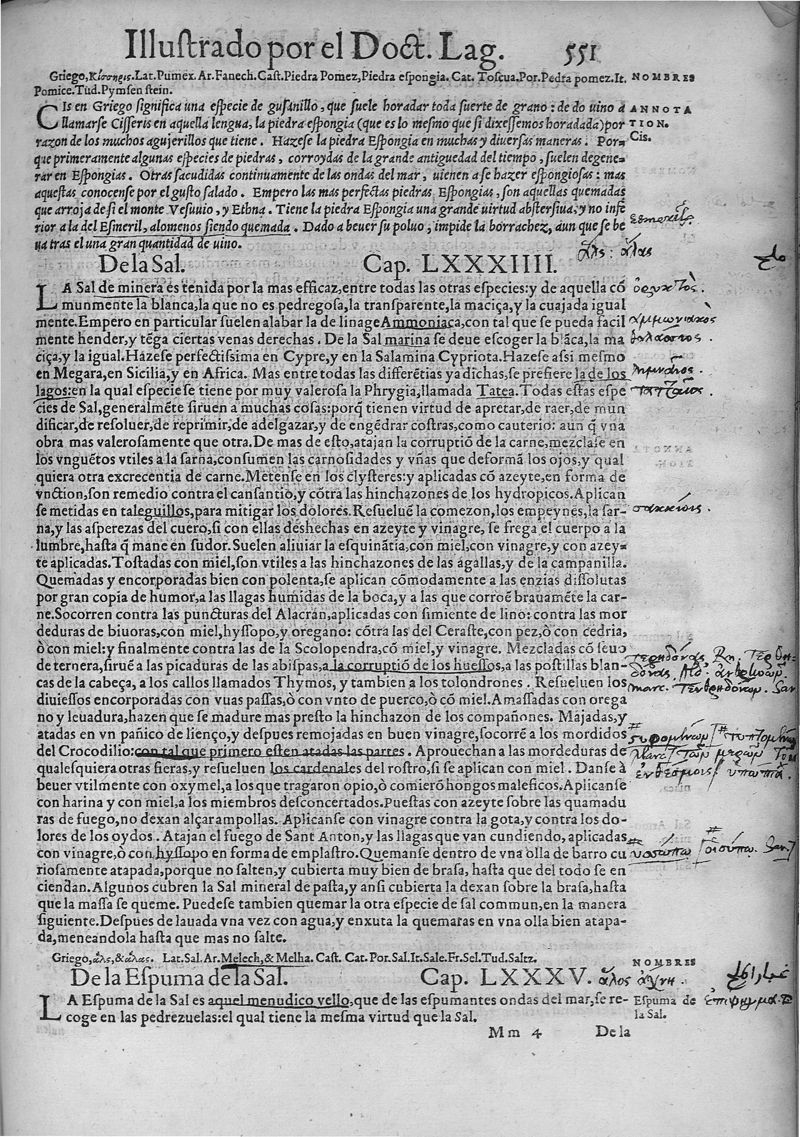 Illuſtrado por el Doct. Lag. 551
Griego, Κίσσηρις. Lat. Pumex. Ar. Fanech. Caſt. Piedra Pomez, Piedra eſpongia. Cat. Toſcua. Por. Pedra pomez. It. NOMBRES
Pomice. Tud. Pymſen ſtein.
CIs en Griego ſignifica una eſpecie de guſanillo, que ſuele horadar toda ſuerte de grano: de do uino a ANNOTA
llamarſe Ciſſeris en aquella lengua, la piedra eſpongia (que es lo meſmo que ſi dixeſſemos horadada) por TION.
razon de los muchos agujerillos que tiene. Hazeſe la piedra Eſpongia en muchas y diuerſas maneras. Por= Cis.
que primeramente algunas eſpecies de piedras, corroydas de la grande antiguedad del tiempo, ſuelen degene=
rar en Eſpongias. Otras ſacudidas continuamente de las ondas del mar, uienen a ſe hazer eſpongioſas: mas
aqueſtas conocenſe por el guſto ſalado. Empero las mas perfectas piedras Eſpongias, ſon aquellas quemadas
que arroja de ſi el monte Veſuuio, y Ethna. Tiene la piedra Eſpongia una grande uirtud abſterſiua, y no infe
rior a la del Eſmeril, alomenos ſiendo quemada. Dado a beuer ſu poluo, impide la borrachez, aun que ſe be
ua tras el una gran quantidad de uino.
ἅλς: ἅλας
De la Sal. Cap. LXXXIIII.
LA Sal de minera es tenida por la mas efficaz, entre todas las otras eſpecies: y de aquella cõ ὀρυκτὸς.
munmente la blanca, la que no es pedregoſa, la tranſparente, la maciça, y la cuajada igual
mente. Empero en particular ſuelen alabar la de linage Ammoniaca, con tal que ſe pueda facil ἀμμωνιακὸς
mente hender, y tẽga ciertas venas derechas. De la Sal marina ſe deue eſcoger la blãca, la ma
ciça, y la igual. Házeſe perfectiſsima en Cypre, y en la Salamina Cypriota. Hazeſe aſsi meſmo
en Megara, en Sicilia, y en Africa. Mas entre todas las differẽtias ya dichas, ſe prefiere la de los
lagos: en la qual eſpecie ſe tiene por muy valeroſa la Phrygia, llamada Tatea. Todas eſtas eſpe
cies de Sal, generalmẽte ſiruen a muchas coſas: porq̃ tienen virtud de apretar, de raer, de mun
dificar, de reſoluer, de reprimir, de adelgazar, y de engẽdrar coſtras, como cauterio: aun q̃ vna
obra mas valeroſamente que otra. De mas de eſto, atajan la corruptiõ de la carne, mezclaſe en
los vnguẽtos vtiles a la ſarna, conſumen las carnoſidades y vñas que deformã los ojos, y qual
quiera otra excrecentia de carne. Metenſe en los clyſteres: y aplicadas cõ azeyte, en forma de
vnction, ſon remedio contra el canſantio, y cõtra las hinchazones de los hydropicos. Aplican
ſe metidas en taleguillos, para mitigar los dolores. Reſueluẽ la comezon, los empeynes, la ſar-
na, y las aſperezas del cuero, ſi con ellas deshechas en azeyte y vinagre, ſe frega el cuerpo a la
lumbre, haſta q̃ mane en ſudor. Suelen aliuiar la eſquinãtia, con miel, con vinagre, y con azey=
te aplicadas. Toſtadas con miel, ſon vtiles a las hinchazones de las ágallas, y de la campanilla.
Quemadas y encorporadas bien con polenta, ſe aplican cõmodamente a las enzias diſſolutas
por gran copia de humor, a las llagas humidas de la boca, y a las que corroẽ brauamẽte la car-
ne. Socorren contra las puncturas del Alacrán, aplicadas con ſimiente de lino: contra las mor
deduras de biuoras, con miel, hyſſopo, y oregano: cõtra las del Ceraſte, con pez, ò con cedria,
ò con miel: y finalmente contra las de la Scolopendra, cõ miel, y vinagre. Mezcladas cõ ſeuo
de ternera, ſiruẽ a las picaduras de las abiſpas, a la corruptiõ de los hueſſos, a las poſtillas blan-
cas de la cabeça, a los callos llamados Thymos, y tambien a los tolondrones. Reſueluen los
diuieſſos encorporadas con vuas paſſas, ò con vnto de puerco, ò cõ miel. Amaſſadas con orega
no y leuadura, hazen que ſe madure mas preſto la hinchazon de los compañones. Májadas, y
atadas en vn pañico de lienço, y deſpues remojadas en buen vinagre, ſocorrẽ a los mordidos
del Crocodilio: con tal que primero eſten atadas las partes. Aprouechan a las mordeduras de
qualesquiera otras fieras, y reſueluen los cardenales del roſtro, ſi ſe aplican con miel. Danſe à
beuer vtilmente con oxymel, a los que tragaron opio, ò comierõ hongos maleficos. Aplicanſe
con harina y con miel, a los miembros desconcertados. Pueſtas con azeyte ſobre las quamadu
ras de fuego, no dexan alçar ampollas. Aplicanſe con vinagre contra la gota, y contra los do-
lores de los oydos. Atajan el fuego de Sant Anton, y las llagas que van cundiendo, aplicadas
con vinagre, ò con hyſſopo en forma de emplaſtro. Quemanſe dentro de vna ólla de barro cu
rioſamente atapada, porque no ſalten, y cubierta muy bien de braſa, haſta que del todo ſe en
ciendan. Algunos cubren la Sal mineral de paſta, y anſi cubierta la dexan ſobre la braſa, haſta
que la maſſa ſe queme. Puedeſe tambien quemar la otra eſpecie de ſal commun, en la manera
ſiguiente. Deſpues de lauada vna vez con agua, y enxuta la quemaras en vna olla bien atapa-
da, meneandola haſta que mas no ſalte.
Griego, ἅλς, & ἅλας. Lat. Sal. Ar. Melech, & Melha. Caſt. Cat. Por. Sal. It. Sale. Fr. Sel. Tud. Saltz. NOMBRES
De la Eſpuma de la Sal. Cap. LXXXV. ἁλὸς ἄχνη.
LA Eſpuma de la Sal es aquel menudico vello, que de las eſpumantes ondas del mar, ſe re- Eſpuma de
coge en las pedrezuelas: el qual tiene la meſma virtud que la Sal. la Sal.
Mm 4 De la